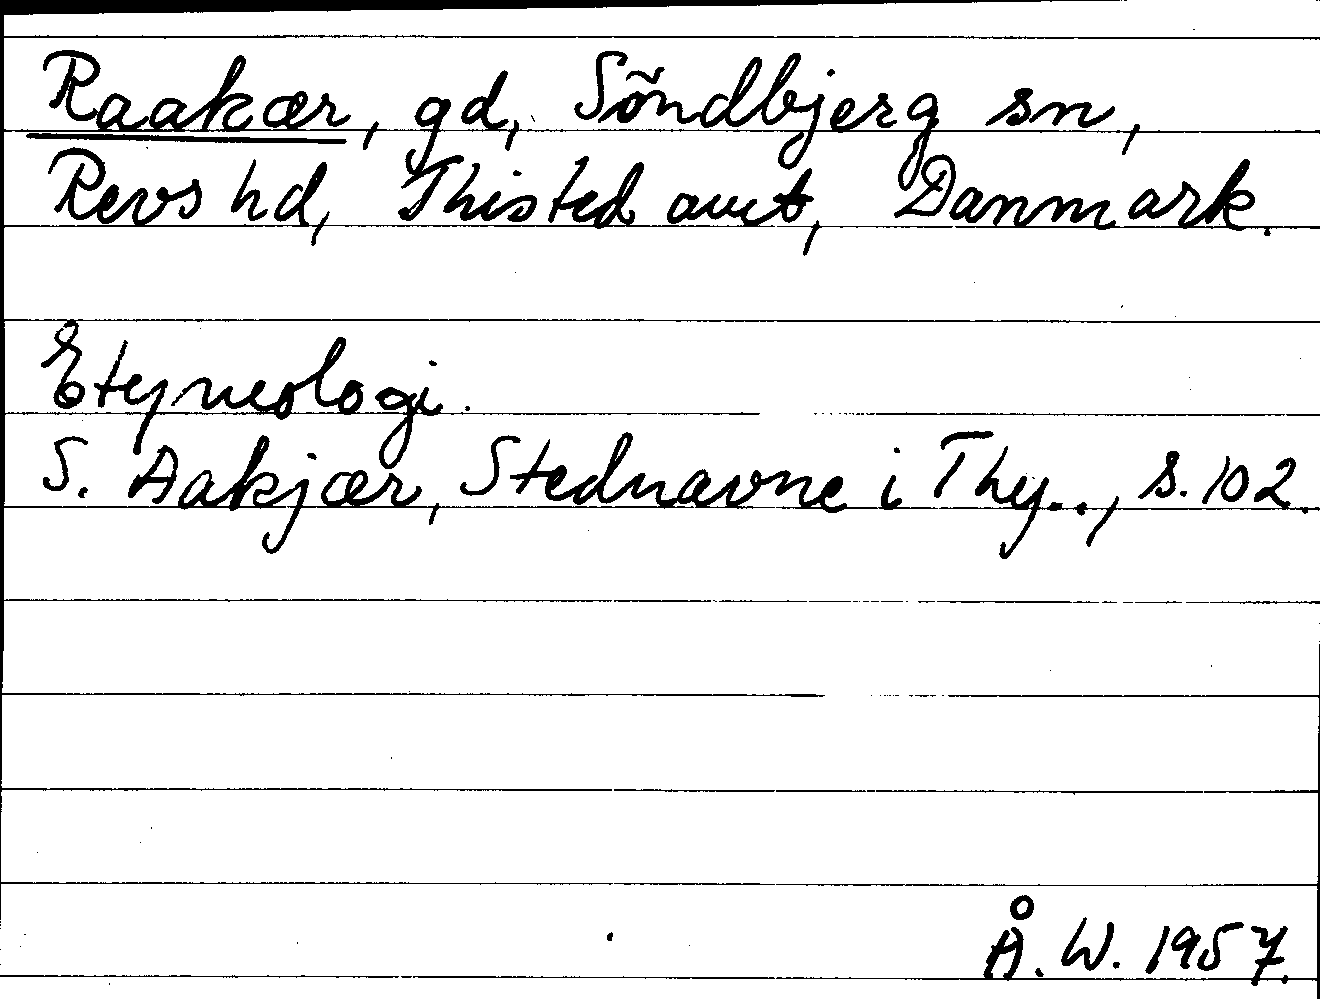 Raakær, gd, Söndbjerg sn,
Revs hd, Thisted amt, Danmark.
Etymologi.
S. Aakjær, Stednavne i Thy.., s. 102.
Å. W. 1957.